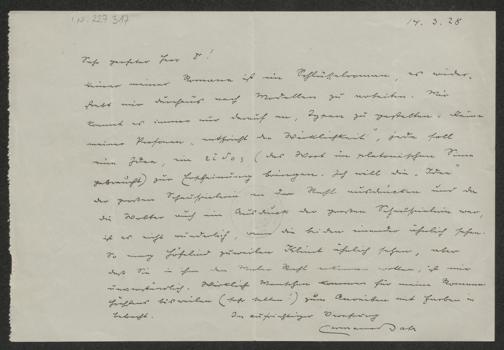 I.N. 227 317
14. 3. 28
Sehr geehrter Herr D!
Keiner meiner Romane ist ein Schlüsselroman, es wider-
strebt mir durchaus nach Modellen zu arbeiten. Mir
kommt es immer nur darauf an, Typen zu gestalten. Keine
meiner Personen „entspricht der Wirklichkeit“, jede soll
eine Idee, ein εἶδος (das Wort im platonischen Sinne
gebraucht) zur Erscheinung bringen. Ich will die „Idee“
der großen Schauspielerin in der Rahl ausdrücken und da
die Wolter auch ein Ausdruck der großen Schauspielerin war,
ist es nicht wunderlich, wenn die beiden einander ähnlich sehen.
So mag Höfelind zuweilen Klimt ähnlich sehen, aber
daß Sie in ihm den Maler erkennen wollen, ist mir
unverständlich. Wirkliche Menschen kommen für meine Romane
höchstens bisweilen (sehr selten!) zum in
betracht. In aufrichtiger Verehrung
Hermann Bahr